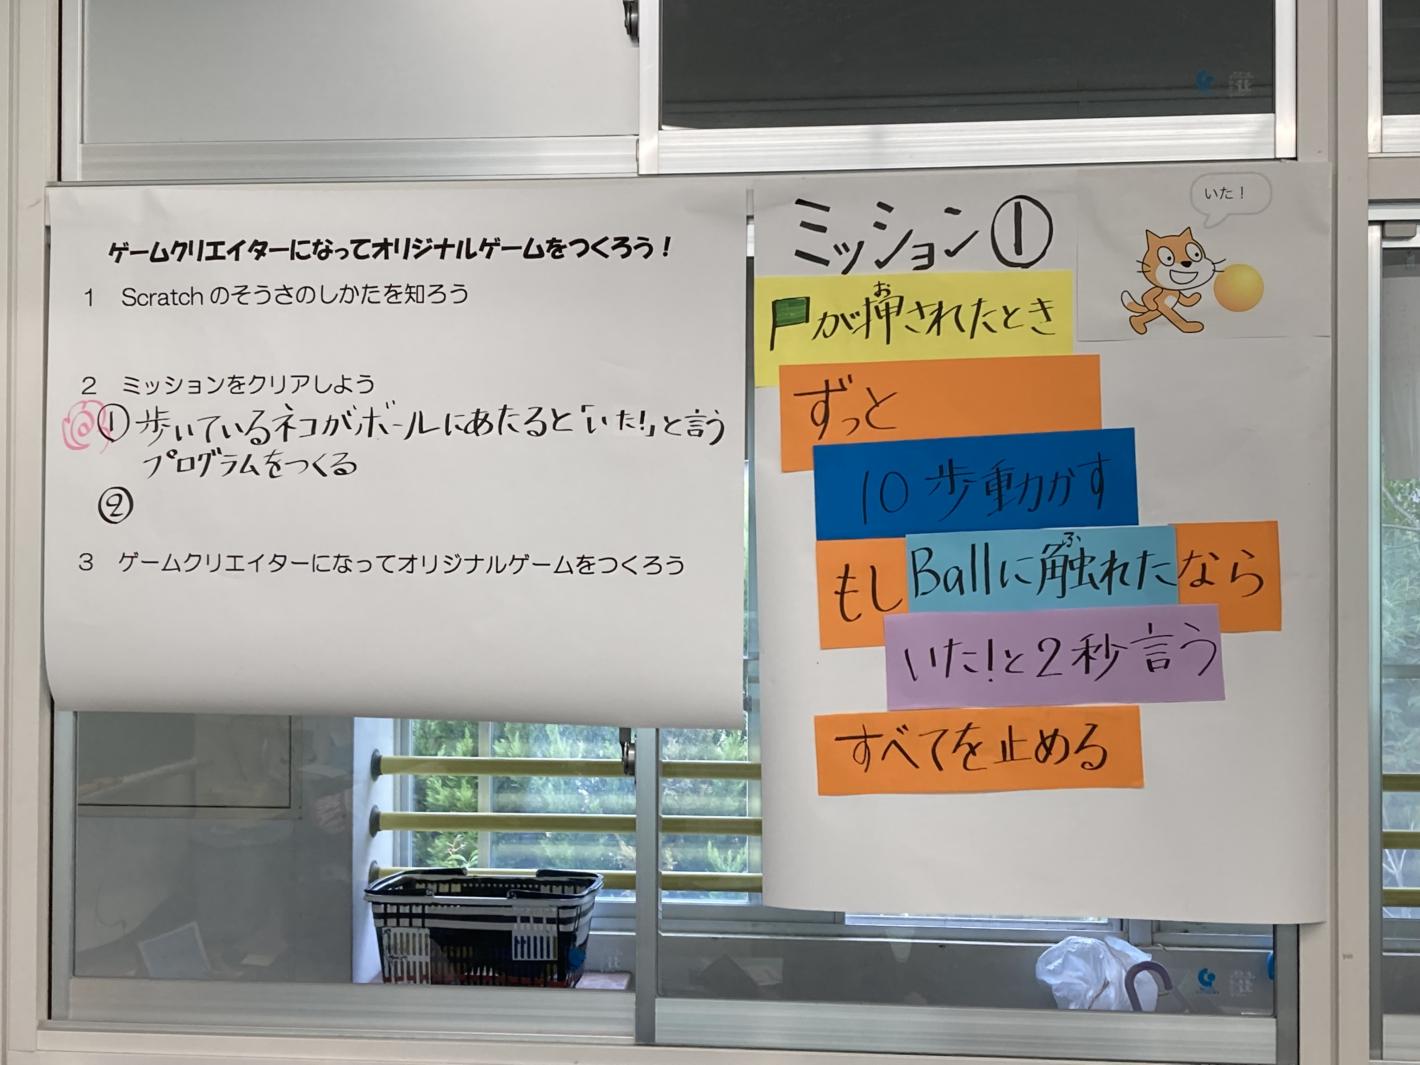 ゲームクリエイターになってオリジナルゲームをつくろう！
1 Scratchのそうさのしかたを知ろう
2 ミッションをクリアしよう
① 歩いているネコがボールにあたると「いた!」と言う
プログラムをつくる
②
3 ゲームクリエイターになってオリジナルゲームをつくろう
ミッション①
いた！
が押されたとき
お
ずっと
10歩動かす
もしBallに触れたなら
ふ
いた!と2秒言う
すべてを止める